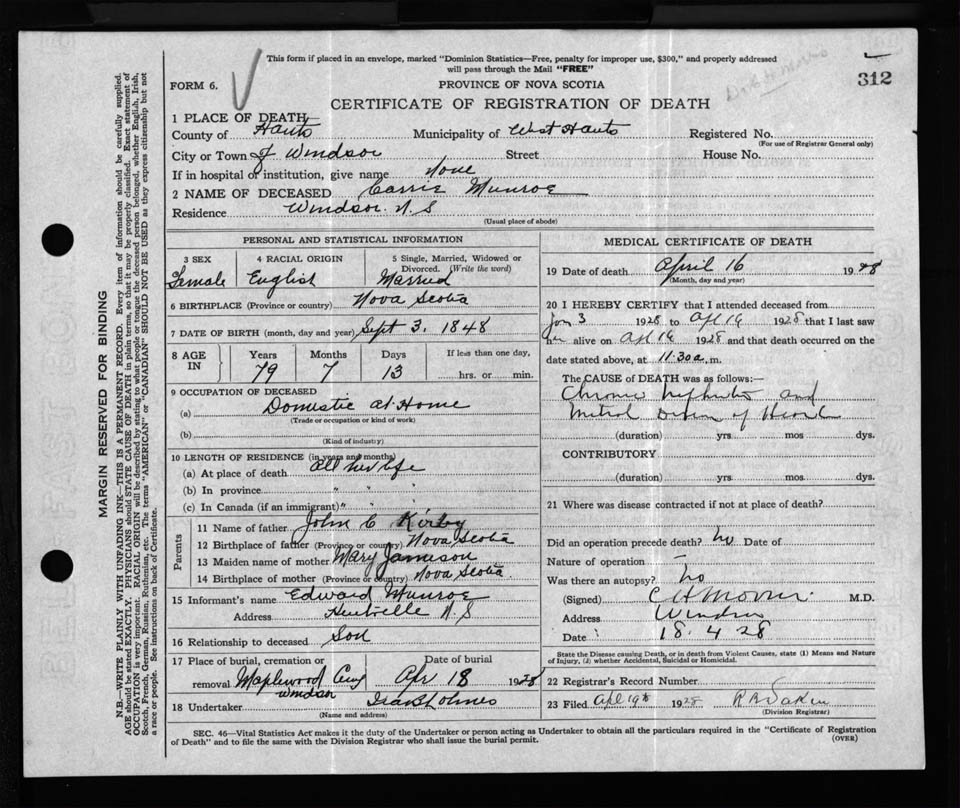 This form if placed in an envelope, marked "Dominion Statistics—Free, penalty for improper use, $300," and properly addressed
will pass through the Mail "FREE"
312
FORM 6.
PROVINCE OF NOVA SCOTIA
CERTIFICATE OF REGISTRATION OF DEATH
1 PLACE OF DEATH
County of Hants Municipality of West Hants Registered No.
(For use of Registrar General only)
City or Town of Windsor Street House No.
If in hospital or institution, give name None
2 NAME OF DECEASED Carrie Munroe
Residence Windsor N S
(Usual place of abode)
PERSONAL AND STATISTICAL INFORMATION
3 SEX 4 RACIAL ORIGIN 5 Single, Married, Widowed or
Divorced. (Write the word)
Female English Married
6 BIRTHPLACE (Province or country) Nova Scotia
7 DATE OF BIRTH (month, day and year) Sept 3, 1848
8 AGE IN Years Months Days If less than one day,
79 7 13 hrs. or min.
9 OCCUPATION OF DECEASED
(a) Domestic at Home
(Trade or occupation or kind of work)
(b)
(Kind of industry)
10 LENGTH OF RESIDENCE (in years and months)
(a) At place of death All her life
(b) In province " "
(c) In Canada (if an immigrant) "
Parents
11 Name of father John C Kirby
12 Birthplace of father (Province or country) Nova Scotia
13 Maiden name of mother Mary Jamieson
14 Birthplace of mother (Province or country) Nova Scotia
15 Informant's name Edward Munroe
Address N S
16 Relationship to deceased Son
17 Place of burial, cremation or Date of burial
removal Maplewood Cemy Apr 18 1928
Windsor
18 Undertaker
(Name and address)
MEDICAL CERTIFICATE OF DEATH
19 Date of death April 16 1928
(Month, day and year)
20 I HEREBY CERTIFY that I attended deceased from
Jan 3 1928 to Apl 16 1928 that I last saw
her alive on Apl 16 1928 and that death occurred on the
date stated above, at 11.30 a. m.
The CAUSE of DEATH was as follows:—
Chronic Nephritis and
Mitral Disease of Heart
(duration) yrs mos dys.
CONTRIBUTORY
(duration) yrs. mos. dys.
21 Where was disease contracted if not at place of death?
Did an operation precede death? No Date of
Nature of operation —
Was there an autopsy? No
(Signed) M.D.
Address Windsor
Date 18. 4. 28
State the Disease causing Death, or in death from Violent Causes, state (1) Means and Nature
of Injury, (2) whether Accidental, Suicidal or Homicidal.
22 Registrar's Record Number
23 Filed Apl 19th 1928
(Division Registrar)
SEC. 46—Vital Statistics Act makes it the duty of the Undertaker or person acting as Undertaker to obtain all the particulars required in the "Certificate of Registration
of Death" and to file the same with the Division Registrar who shall issue the burial permit.
(OVER)
MARGIN RESERVED FOR BINDING
N.B.—WRITE PLAINLY WITH UNFADING INK—THIS IS A PERMANENT RECORD. Every item of information should be carefully supplied.
AGE should be stated EXACTLY. PHYSICIANS should STATE CAUSE OF DEATH in plain terms, so that it may be properly classified. Exact statement of
OCCUPATION is very important. RACIAL ORIGIN will be described by stating to what people or tongue the deceased person belonged, whether English, Irish,
Scotch, French, German, Russian, Ruthenian, etc. The terms "AMERICAN" or "CANADIAN" SHOULD NOT BE USED as they express citizenship but not
a race or people. See instructions on back of Certificate.